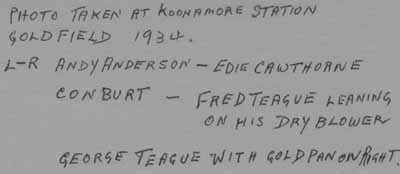 PHOTO TAKEN AT KOONAMORE STATION
GOLDFIELD 1934.
L-R ANDY ANDERSON - EDIE CAWTHORNE
CON BURT - FRED TEAGUE LEANING
ON HIS DRY BLOWER
GEORGE TEAGUE WITH GOLD PAN ON RIGHT.